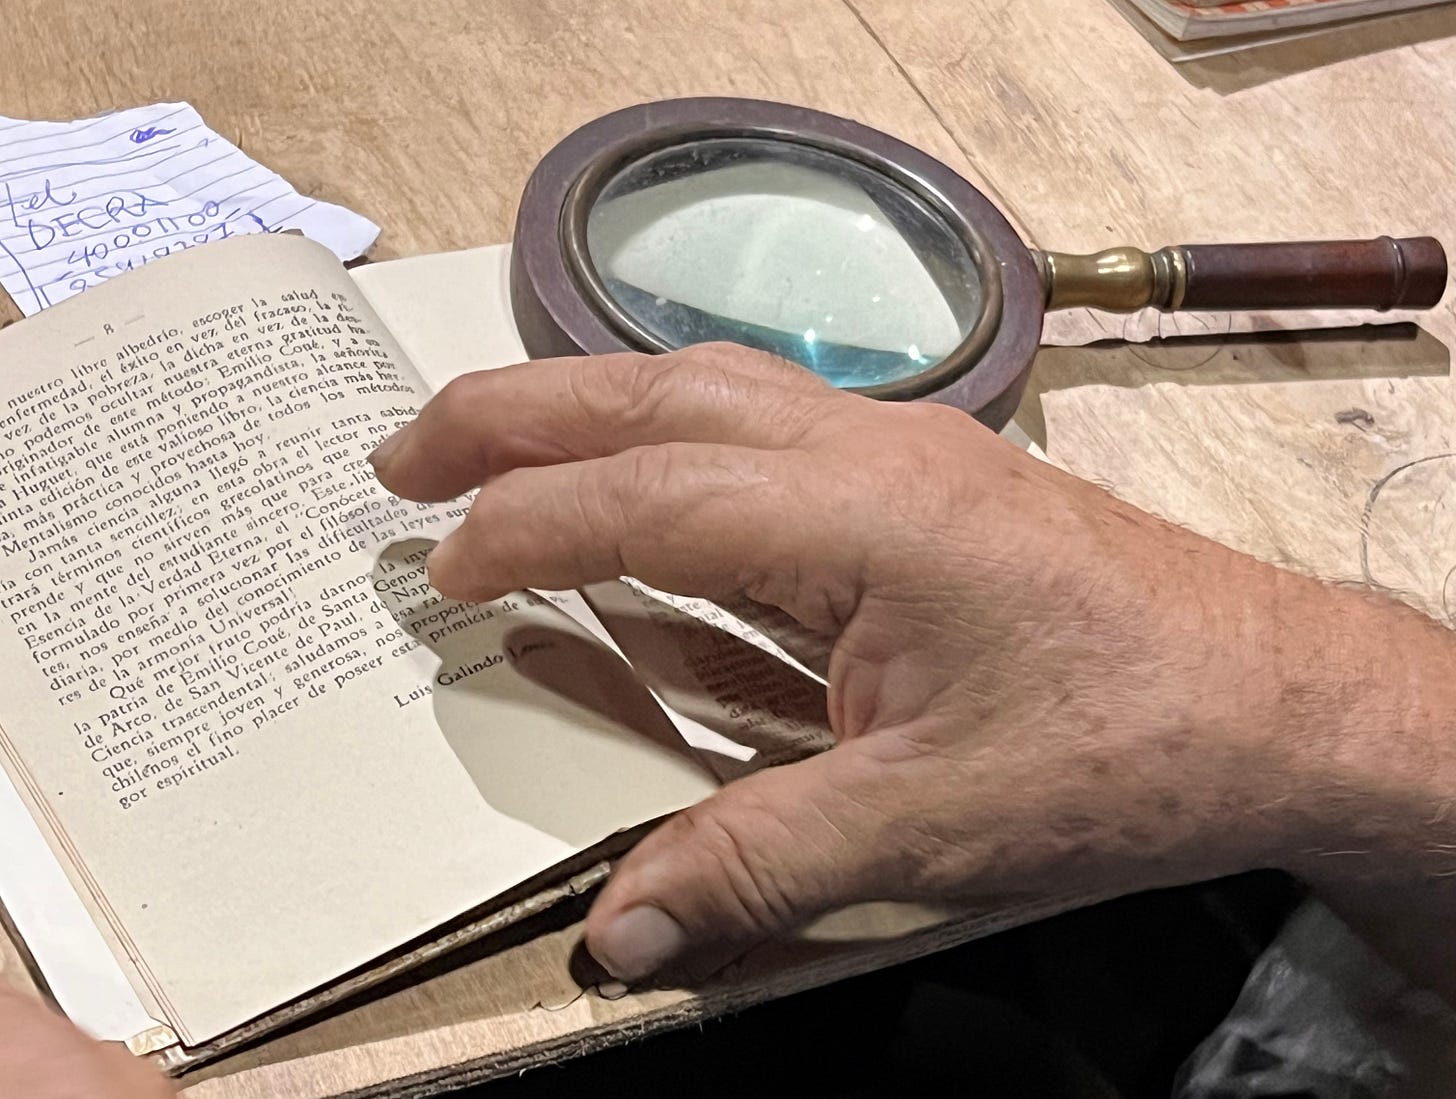 tel
DECRA
40001100
8
nuestro libre albedrío, escoger la salud en
enfermedad, el éxito en vez del fracaso, la ri-
vez de la pobreza, la dicha en vez de la des-
podemos ocultar nuestra eterna gratitud ha-
originador de este método: Emilio Coué, y a su
e infatigable alumna y propagandista, la señorita
Huguet, que está poniendo a nuestro alcance por
inta edición de este valioso libro, la ciencia más her-
a, más práctica y provechosa de todos los métodos
Mentalismo conocidos hasta hoy.
Jamás ciencia alguna llegó a reunir tanta sabidu
ía con tanta sencillez; en esta obra el lector no en
trará términos científicos grecolatinos que nadi
prende y que no sirven más que para cre
en la mente del estudiante sincero. Este lib
Esencia de la Verdad Eterna, el "Conócete
formulado por primera vez por el filósofo g
tes, nos enseña a solucionar las dificultades de la v
diaria, por medio del conocimiento de las leyes sup
res de la armonía Universal!
Qué mejor fruto podría darnos la inv
la patria de Emilio Coué, de Santa Genov
de Arco, de San Vicente de Paul, de Nap
Ciencia trascendental; saludamos esa ra
que, siempre joven y generosa, nos proporc
chilenos el fino placer de poseer esta primicia de su
gor espiritual.
Luis Galindo